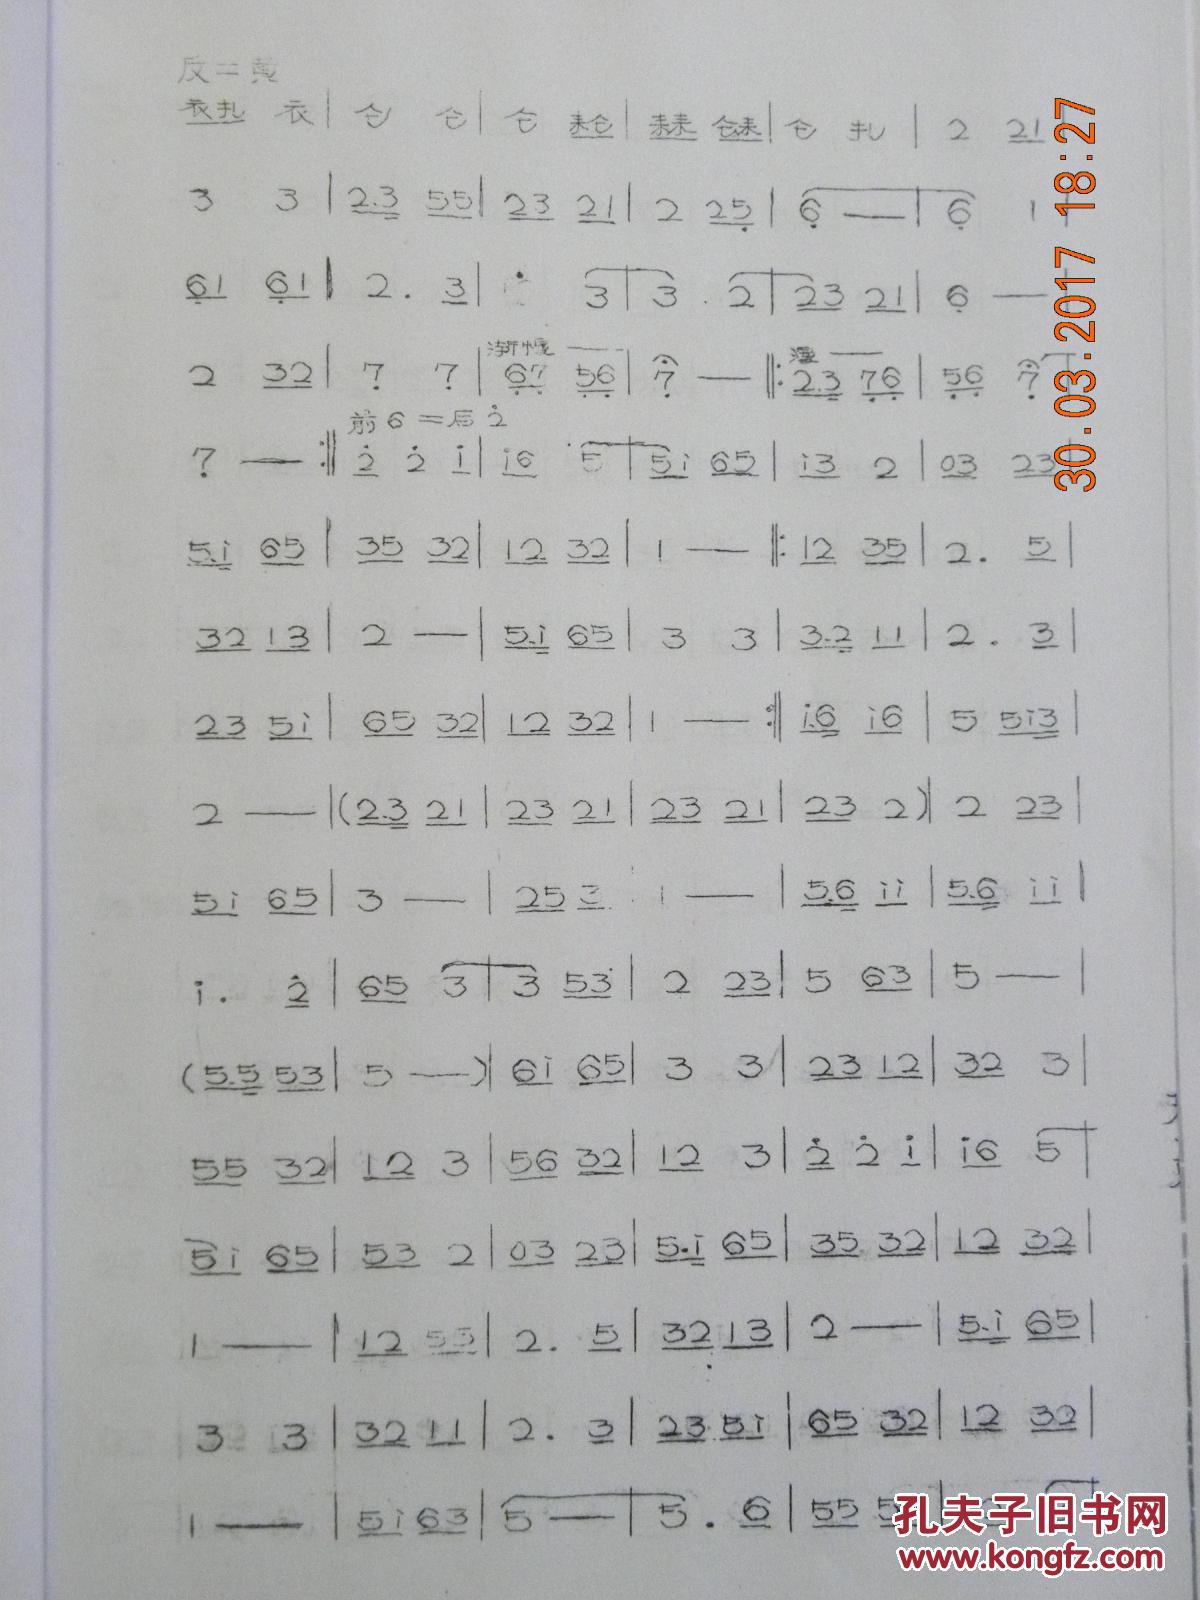 反二黄
衣扎 衣 | 仓 仓 | 仓 来仓 | 来来 仓来 | 仓 扎 | 2 21 |
3 3 | 2.3 55 | 23 21 | 2 25 | 6 — | 6 1 |
61 61 | 2. 3 | 3 | 3. 2 | 23 21 | 6 —
渐慢 — 漫 —
2 32 | 7 7 | 67 56 | 7 — ‖: 2.3 76 | 56 7 |
前6=后2̇
7 — :‖ 2̇ 2̇ i | i6 5 | 5i 65 | i3 2 | 03 23 |
5.i 65 | 35 32 | 12 32 | 1 — ‖: 12 35 | 2. 5 |
32 13 | 2 — | 5.i 65 | 3 3 | 3.2 11 | 2. 3 |
23 5i | 65 32 | 12 32 | 1 — :‖ i.6 i6 | 5 5i3 |
2 — | (2.3 21 | 23 21 | 23 21 | 23 2) | 2 23 |
5i 65 | 3 — | 25 3 | 1 — | 5.6 ii | 5.6 ii |
i. 2̇ | 65 3 | 3 53 | 2 23 | 5 63 | 5 — |
(5.5 53 | 5 —) | 6i 65 | 3 3 | 23 12 | 32 3 |
55 32 | 12 3 | 56 32 | 12 3 | 2̇ 2̇ i | i6 5 |
5i 65 | 53 2 | 03 23 | 5.i 65 | 35 32 | 12 32 |
1 — | 12 55 | 2. 5 | 32 13 | 2 — | 5.i 65 |
3 3 | 32 11 | 2. 3 | 23 5i | 65 32 | 12 32 |
1 — | 5i 63 | 5 — | 5. 6 | 55
30.03.2017 18:27
孔夫子旧书网
www.kongfz.com